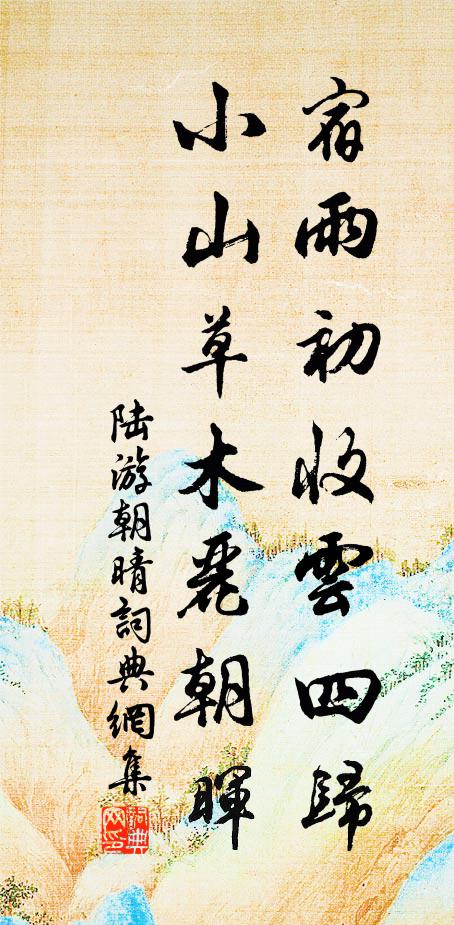 宿雨初收雲四歸
小山草木麗朝暉
陆游朝晴詞典網集
詞典網印